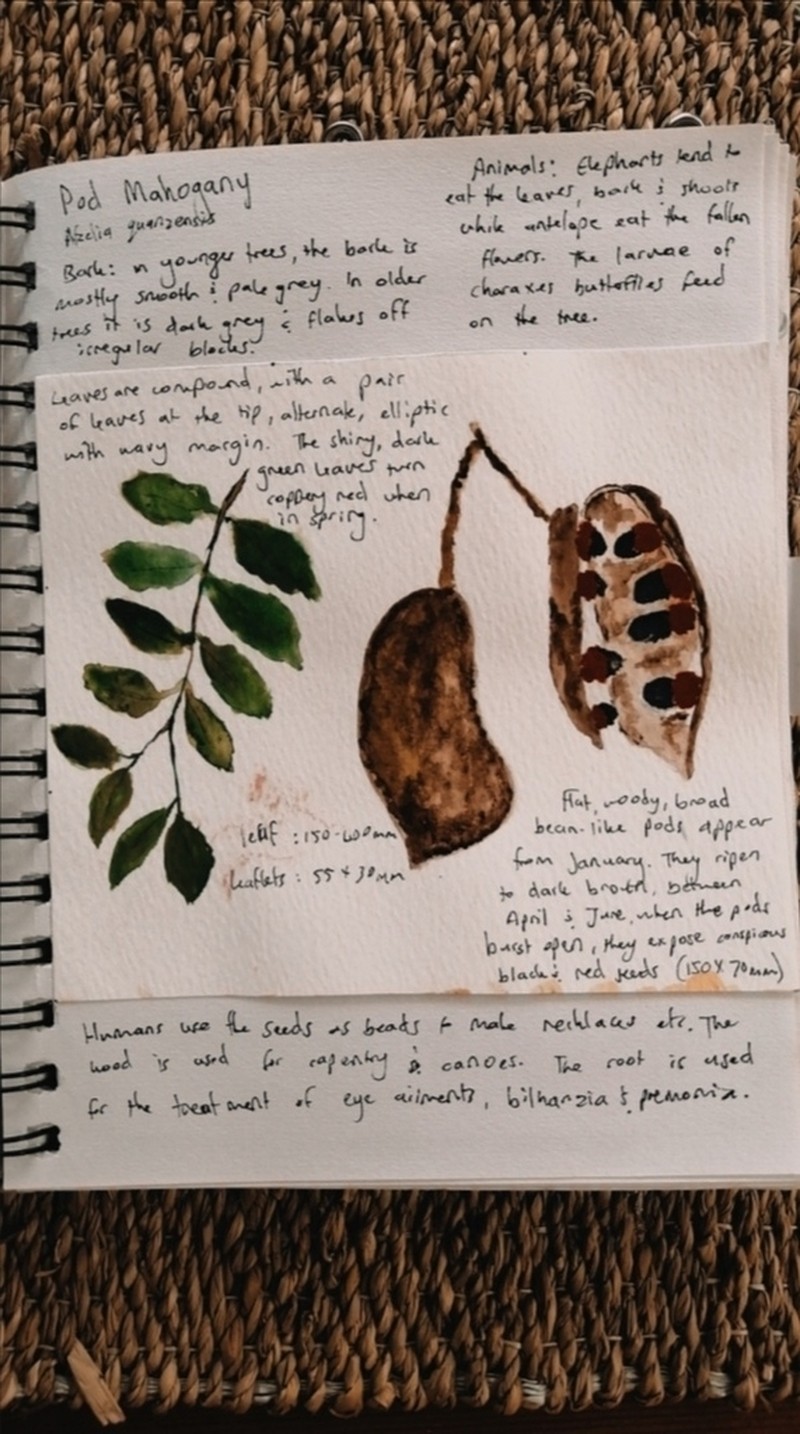 Pod Mahogany
Afzelia quanzensis
Bark: in younger trees, the bark is
mostly smooth & pale grey. In older
trees it is dark grey & flakes off
irregular blocks.
Animals: Elephants tend to
eat the leaves, bark & shoots
while antelope eat the fallen
flowers. The larvae of
charaxes butterflies feed
on the tree.
Leaves are compound, with a pair
of leaves at the tip, alternate, elliptic
with wavy margin. The shiny, dark
green leaves turn
coppery red when
in spring.
leaf : 150-400mm
leaflets : 55 x 30mm
Flat, woody, broad
bean-like pods appear
from January. They ripen
to dark brown, between
April & June, when the pods
burst open, they expose conspicious
black & red seeds (150 x 70mm)
Humans use the seeds as beads to make necklaces etc. The
wood is used for capentry & canoes. The root is used
for the treatment of eye ailments, bilharzia & pnemonia.